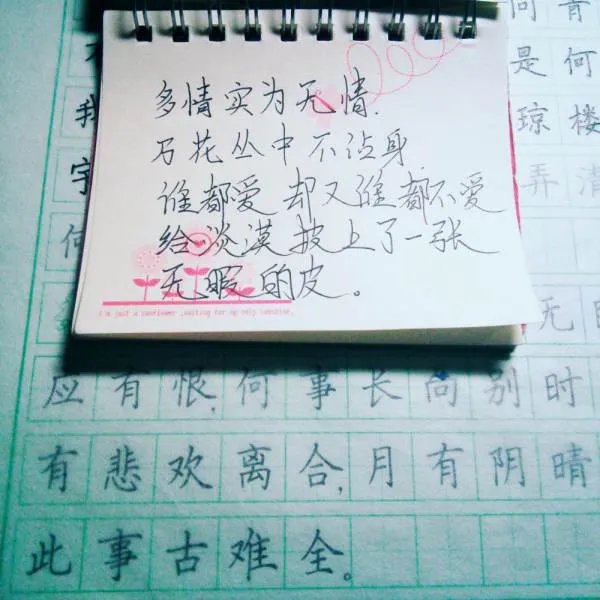 青
是何
我
琼楼
宇
弄清
何
无
多情实为无情.
万花丛中不沾身.
谁都爱 却又谁都不爱
给淡漠披上了一张
无暇的皮。
I'm just a sunflower ,waiting for my only sunshine.
应有恨,何事长向别时
有悲欢离合,月有阴晴
此事古难全。